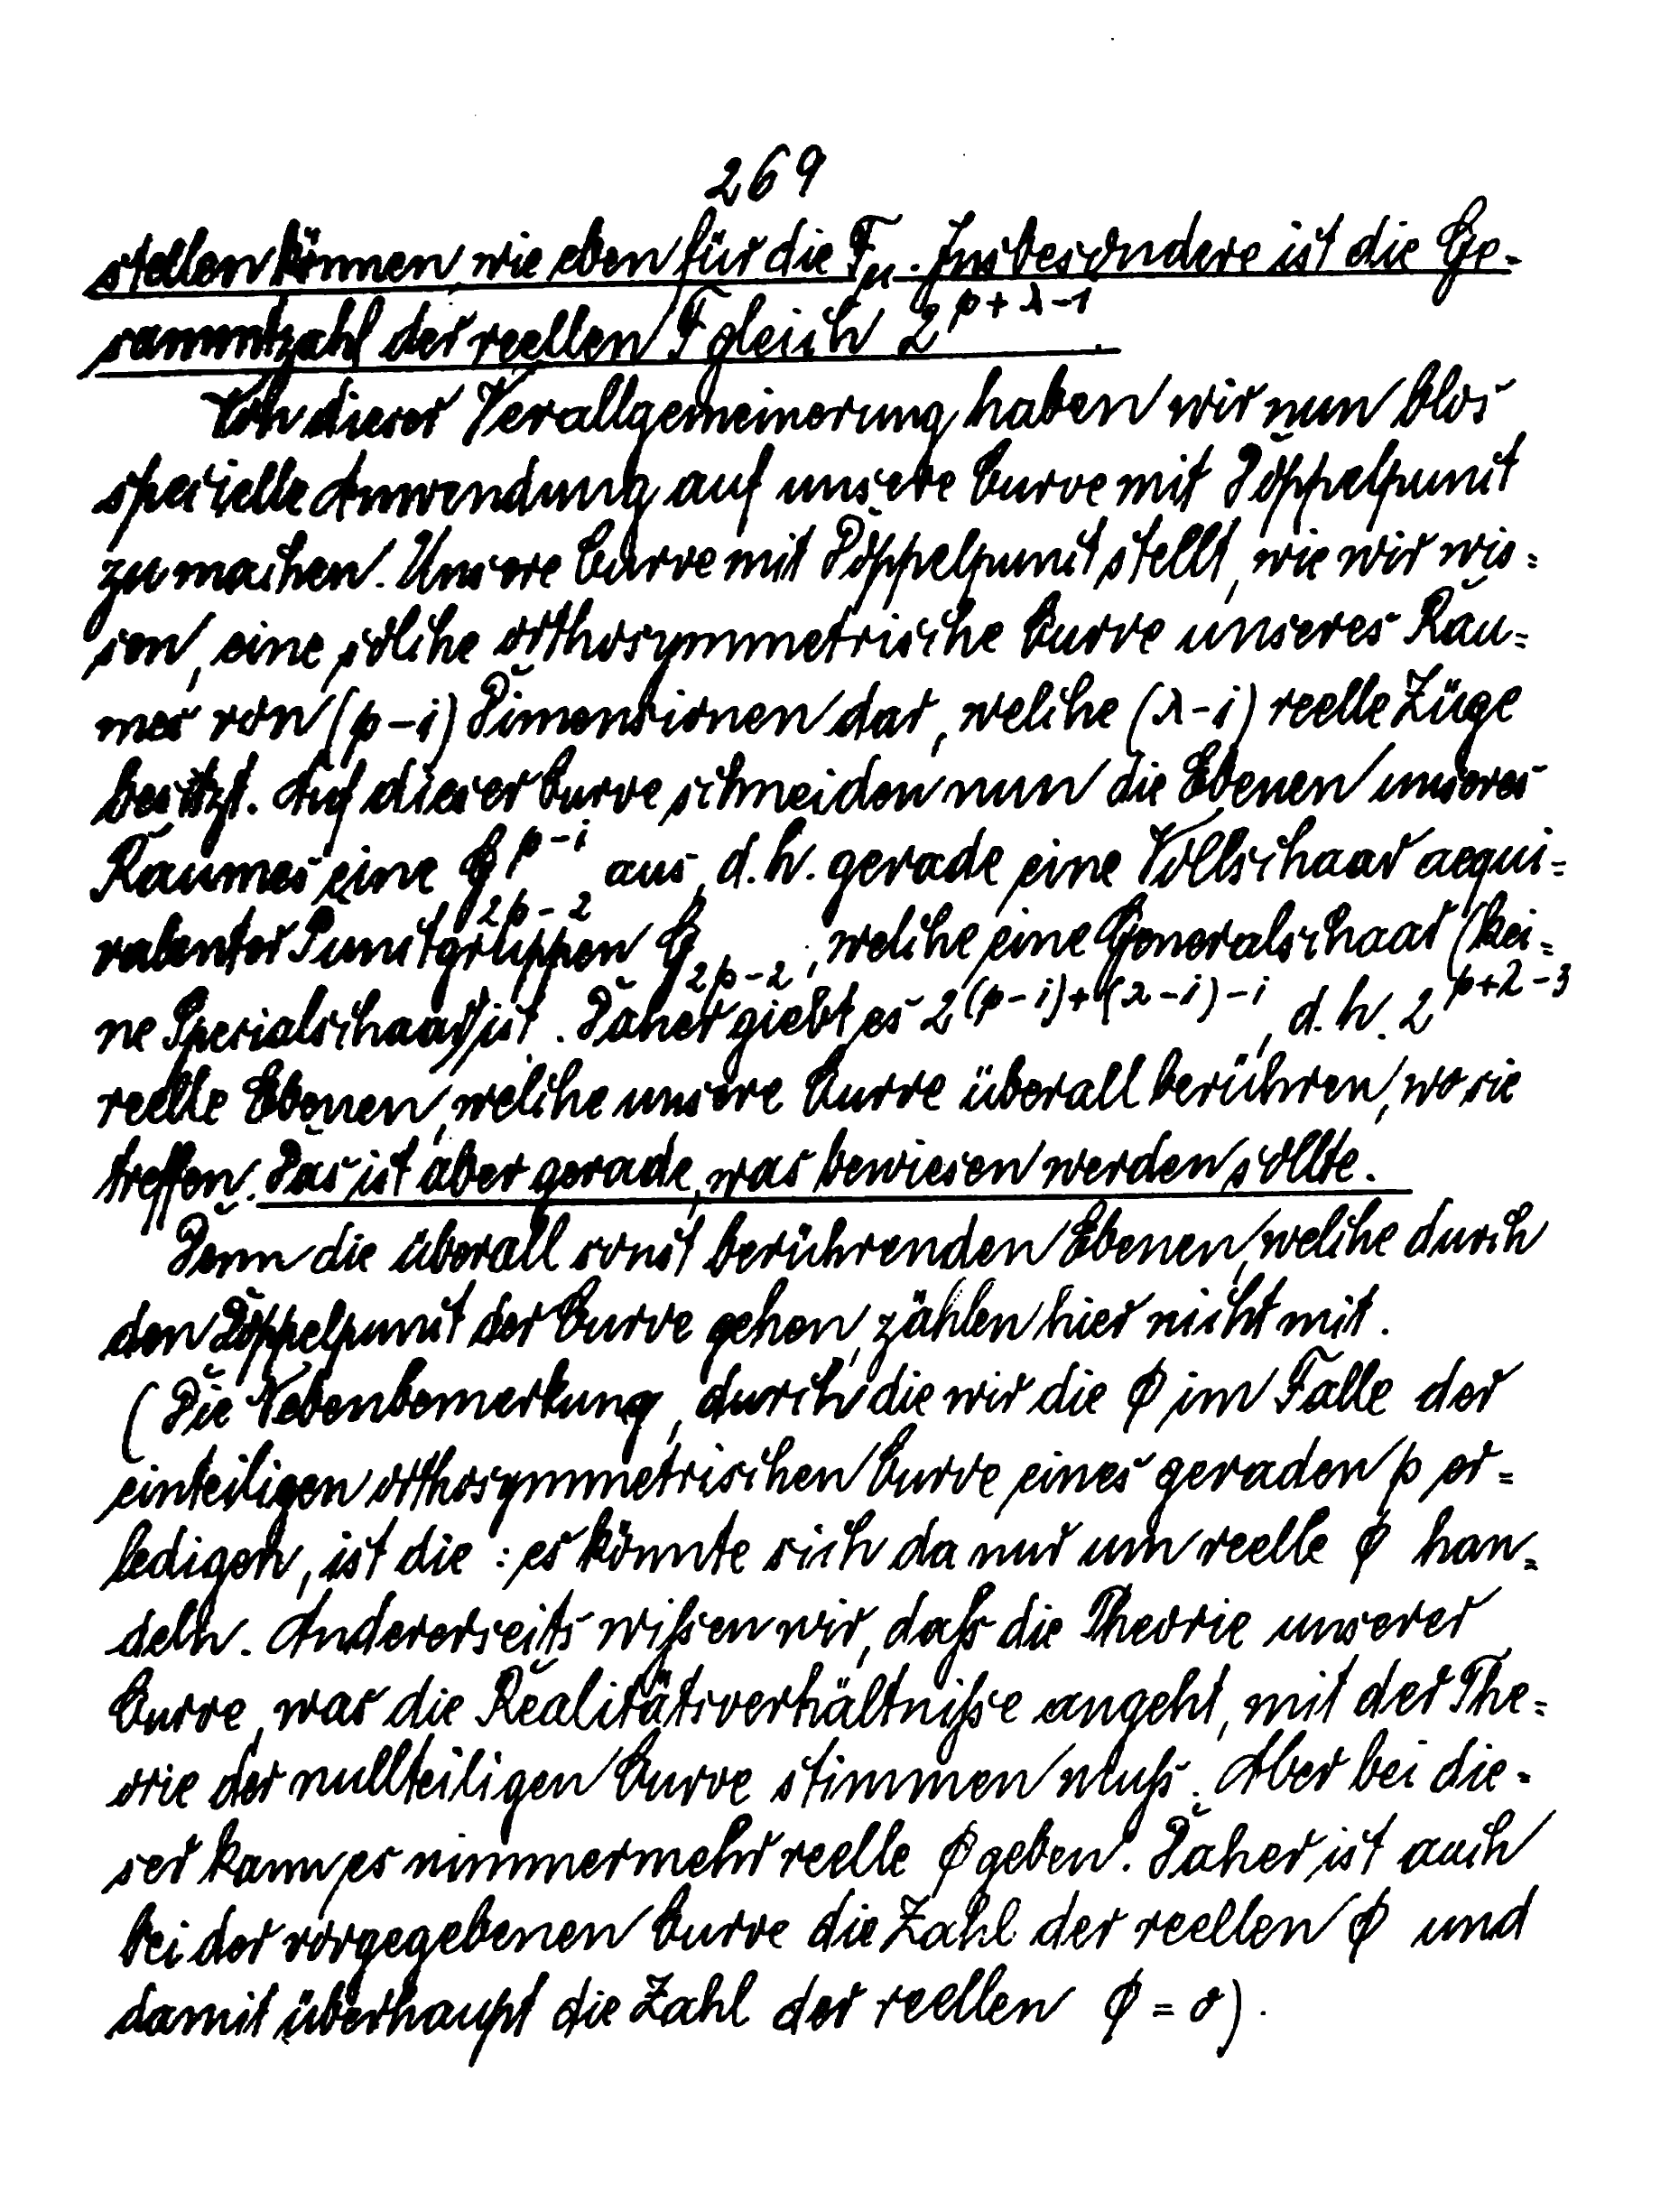 269
stellen können, wie eben für die Fμ. Insbesondere ist die Ge-
sammtzahl der reellen F gleich 2^{p+λ-1}.
Von dieser Verallgemeinerung haben wir nun blos
specielle Anwendung auf unsere Curve mit Doppelpunct
zu machen. Unsere Curve mit Doppelpunct stellt, wie wir wis=
sen, eine solche orthosymmetrische Curve unseres Rau=
mes von (p-1) Dimensionen dar, welche (λ-1) reelle Züge
besitzt. Auf dieser Curve schneiden nun die Ebenen unseres
Raumes eine G_{2p-2}^{p-1} aus, d.h. gerade eine Vollschaar aequi=
valenter Punctgruppen G_{2p-2}, welche eine Generalschaar (kei=
ne Specialschaar) ist. Daher giebt es 2^{(p-1)+(λ-1)-1}, d.h. 2^{p+λ-3}
reelle Ebenen, welche unsere Curve überall berühren, wo sie
treffen. Das ist aber gerade, was bewiesen werden sollte.
Denn die überall sonst berührenden Ebenen, welche durch
den Doppelpunct der Curve gehen, zählen hier nicht mit.
(Die Nebenbemerkung, durch die wir die Φ im Falle der
einteiligen orthosymmetrischen Curve eines geraden p er=
ledigen, ist die: es könnte sich da nur um reelle Φ han=
deln. Andererseits wißen wir, daß die Theorie unserer
Curve, was die Realitätsverhältniße angeht, mit der The=
orie der nullteiligen Curve stimmen muß. Aber bei die=
ser kann es nimmermehr reelle Φ geben. Daher ist auch
bei der vorgegebenen Curve die Zahl der reellen Φ und
damit überhaupt die Zahl der reellen Φ = 0).